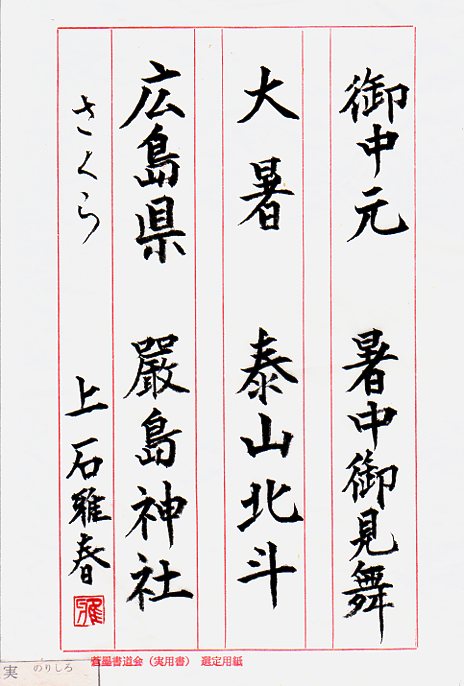 御中元 暑中御見舞
大暑 泰山北斗
広島県 厳島神社
さくら 上石雅春
雅
蒼墨書道会（実用書） 選定用紙
実 のりしろ